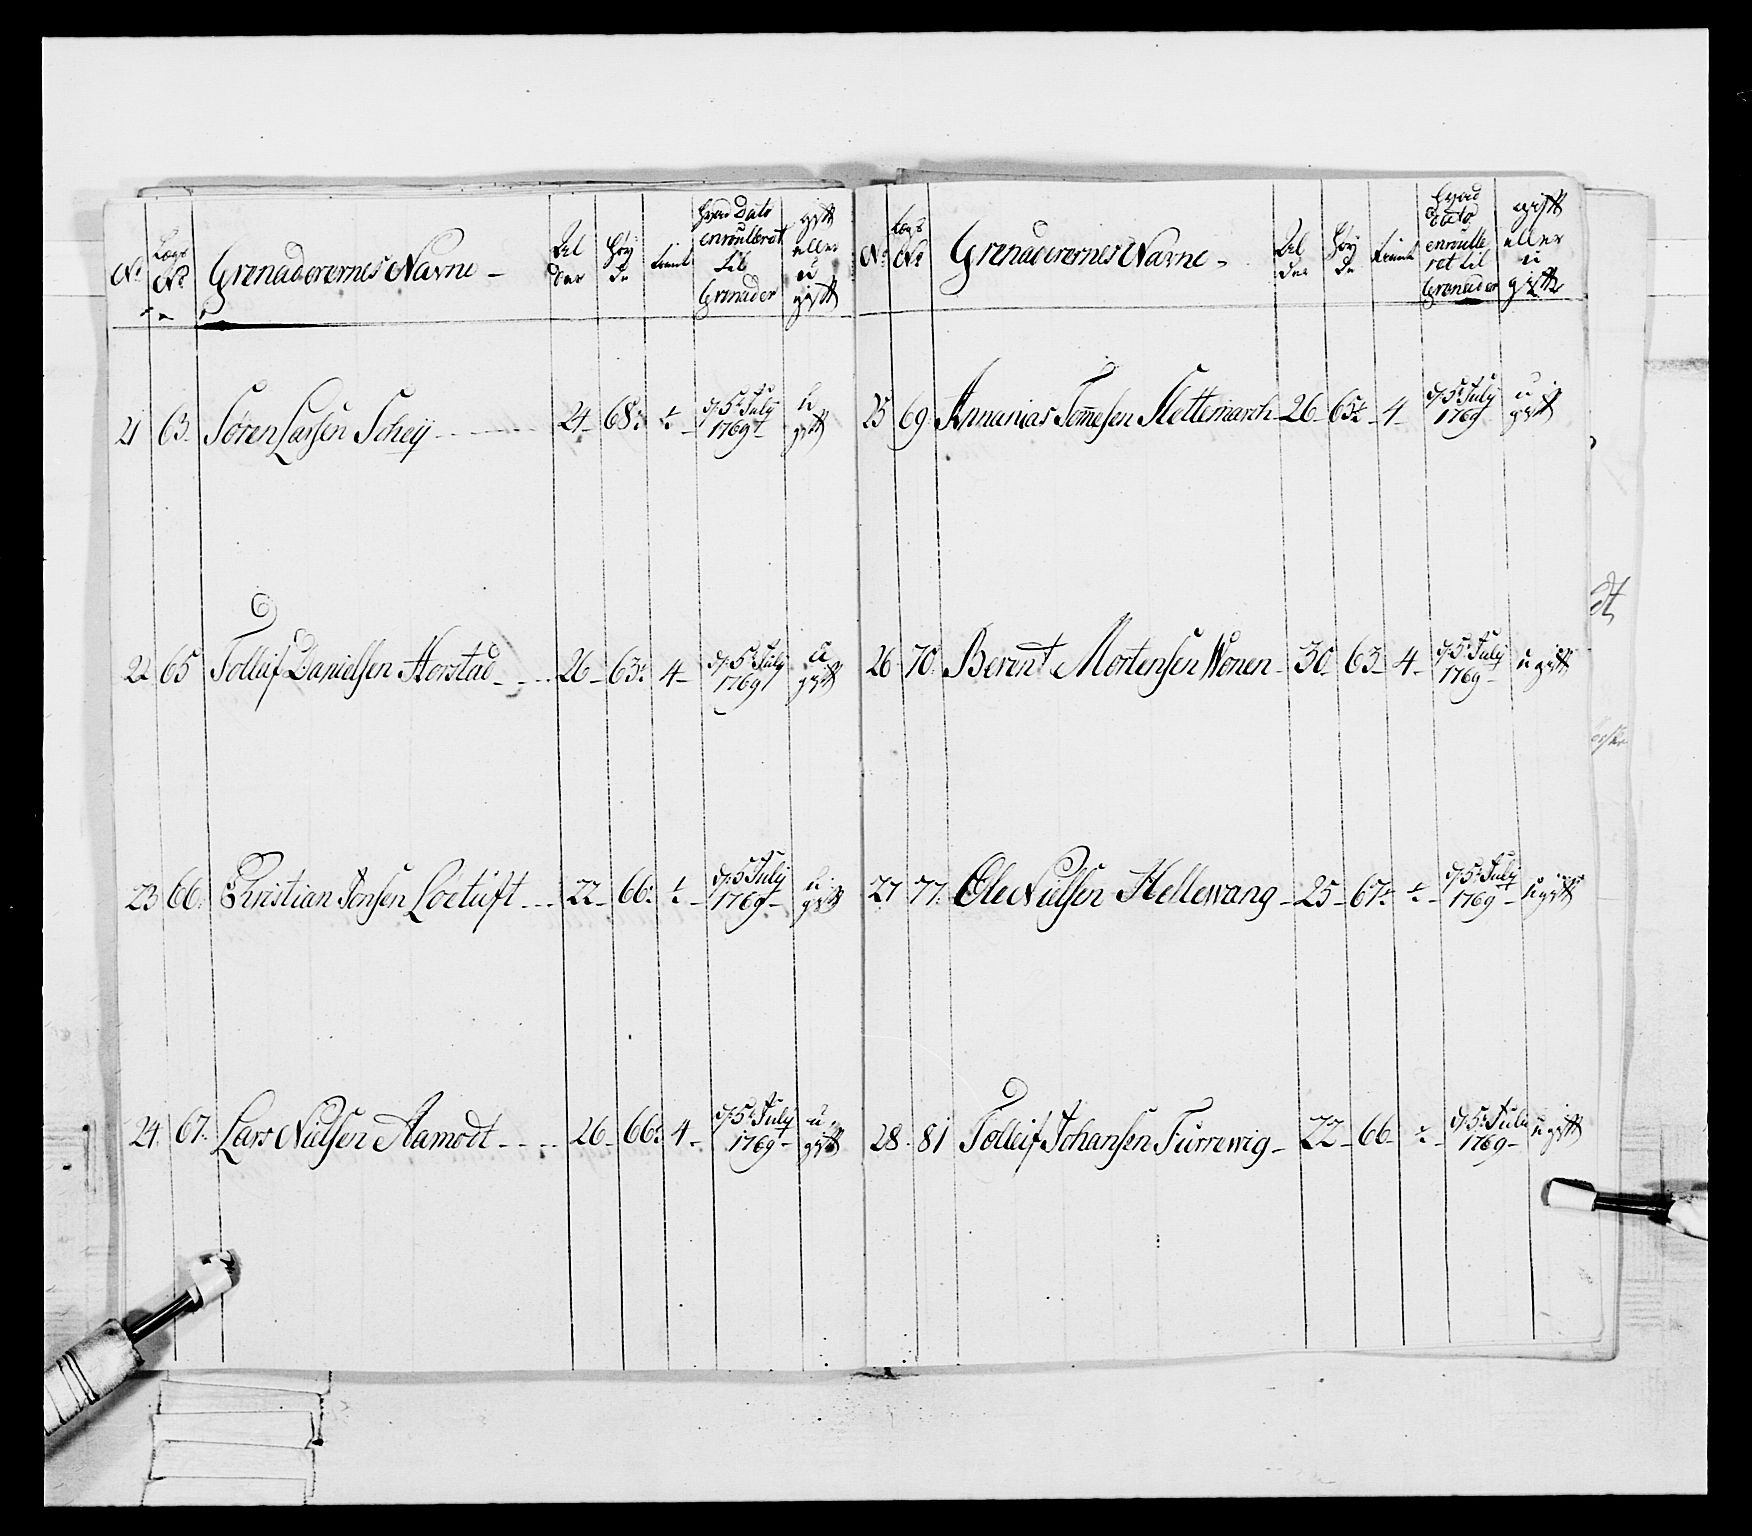 No Logs No Grenaderernes Navne - Al der Høy de hvad Dato enroulleret til Grenader gift eller u gift
21 63. Søren Larsen Schey - - - 24 - 68: ÷ d 5t July 1769 - u gift
22 65 Tolleif Danielssen Horstad - - 26 - 63: 4 - d 5t July 1769 u gift
23 66. Christian Jonsen Loetuft - - 22 - 66: ÷ - d 5 July 1769 - u gift
24. 67. Lars Nielsen Aamodt - - - 26 - 66: 4 - d 5t July 1769 - u gift
No Logs No Grenaderernes Navne - Al der Høy de hvad dato enroulleret til Grenader gift eller u gift
25 69. Annanias Tomesen Slettemarch - 26 - 65: - 4 - d 5t July 1769 u gift
26 70. Berent Mortensen Wonen - 30 - 63 - 4 - d 5t July 1769 - u gift
27 77. Ole Nielsen Hellewang - 25 - 67: ÷ - d 5t July 1769 - u gift
28. 81 Tolleif Johansen Furrewig - 22 - 66 - ÷ - d 5t July 1769 - u gift